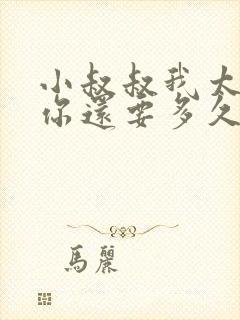 小叔叔我太
你還要多久
馬麗